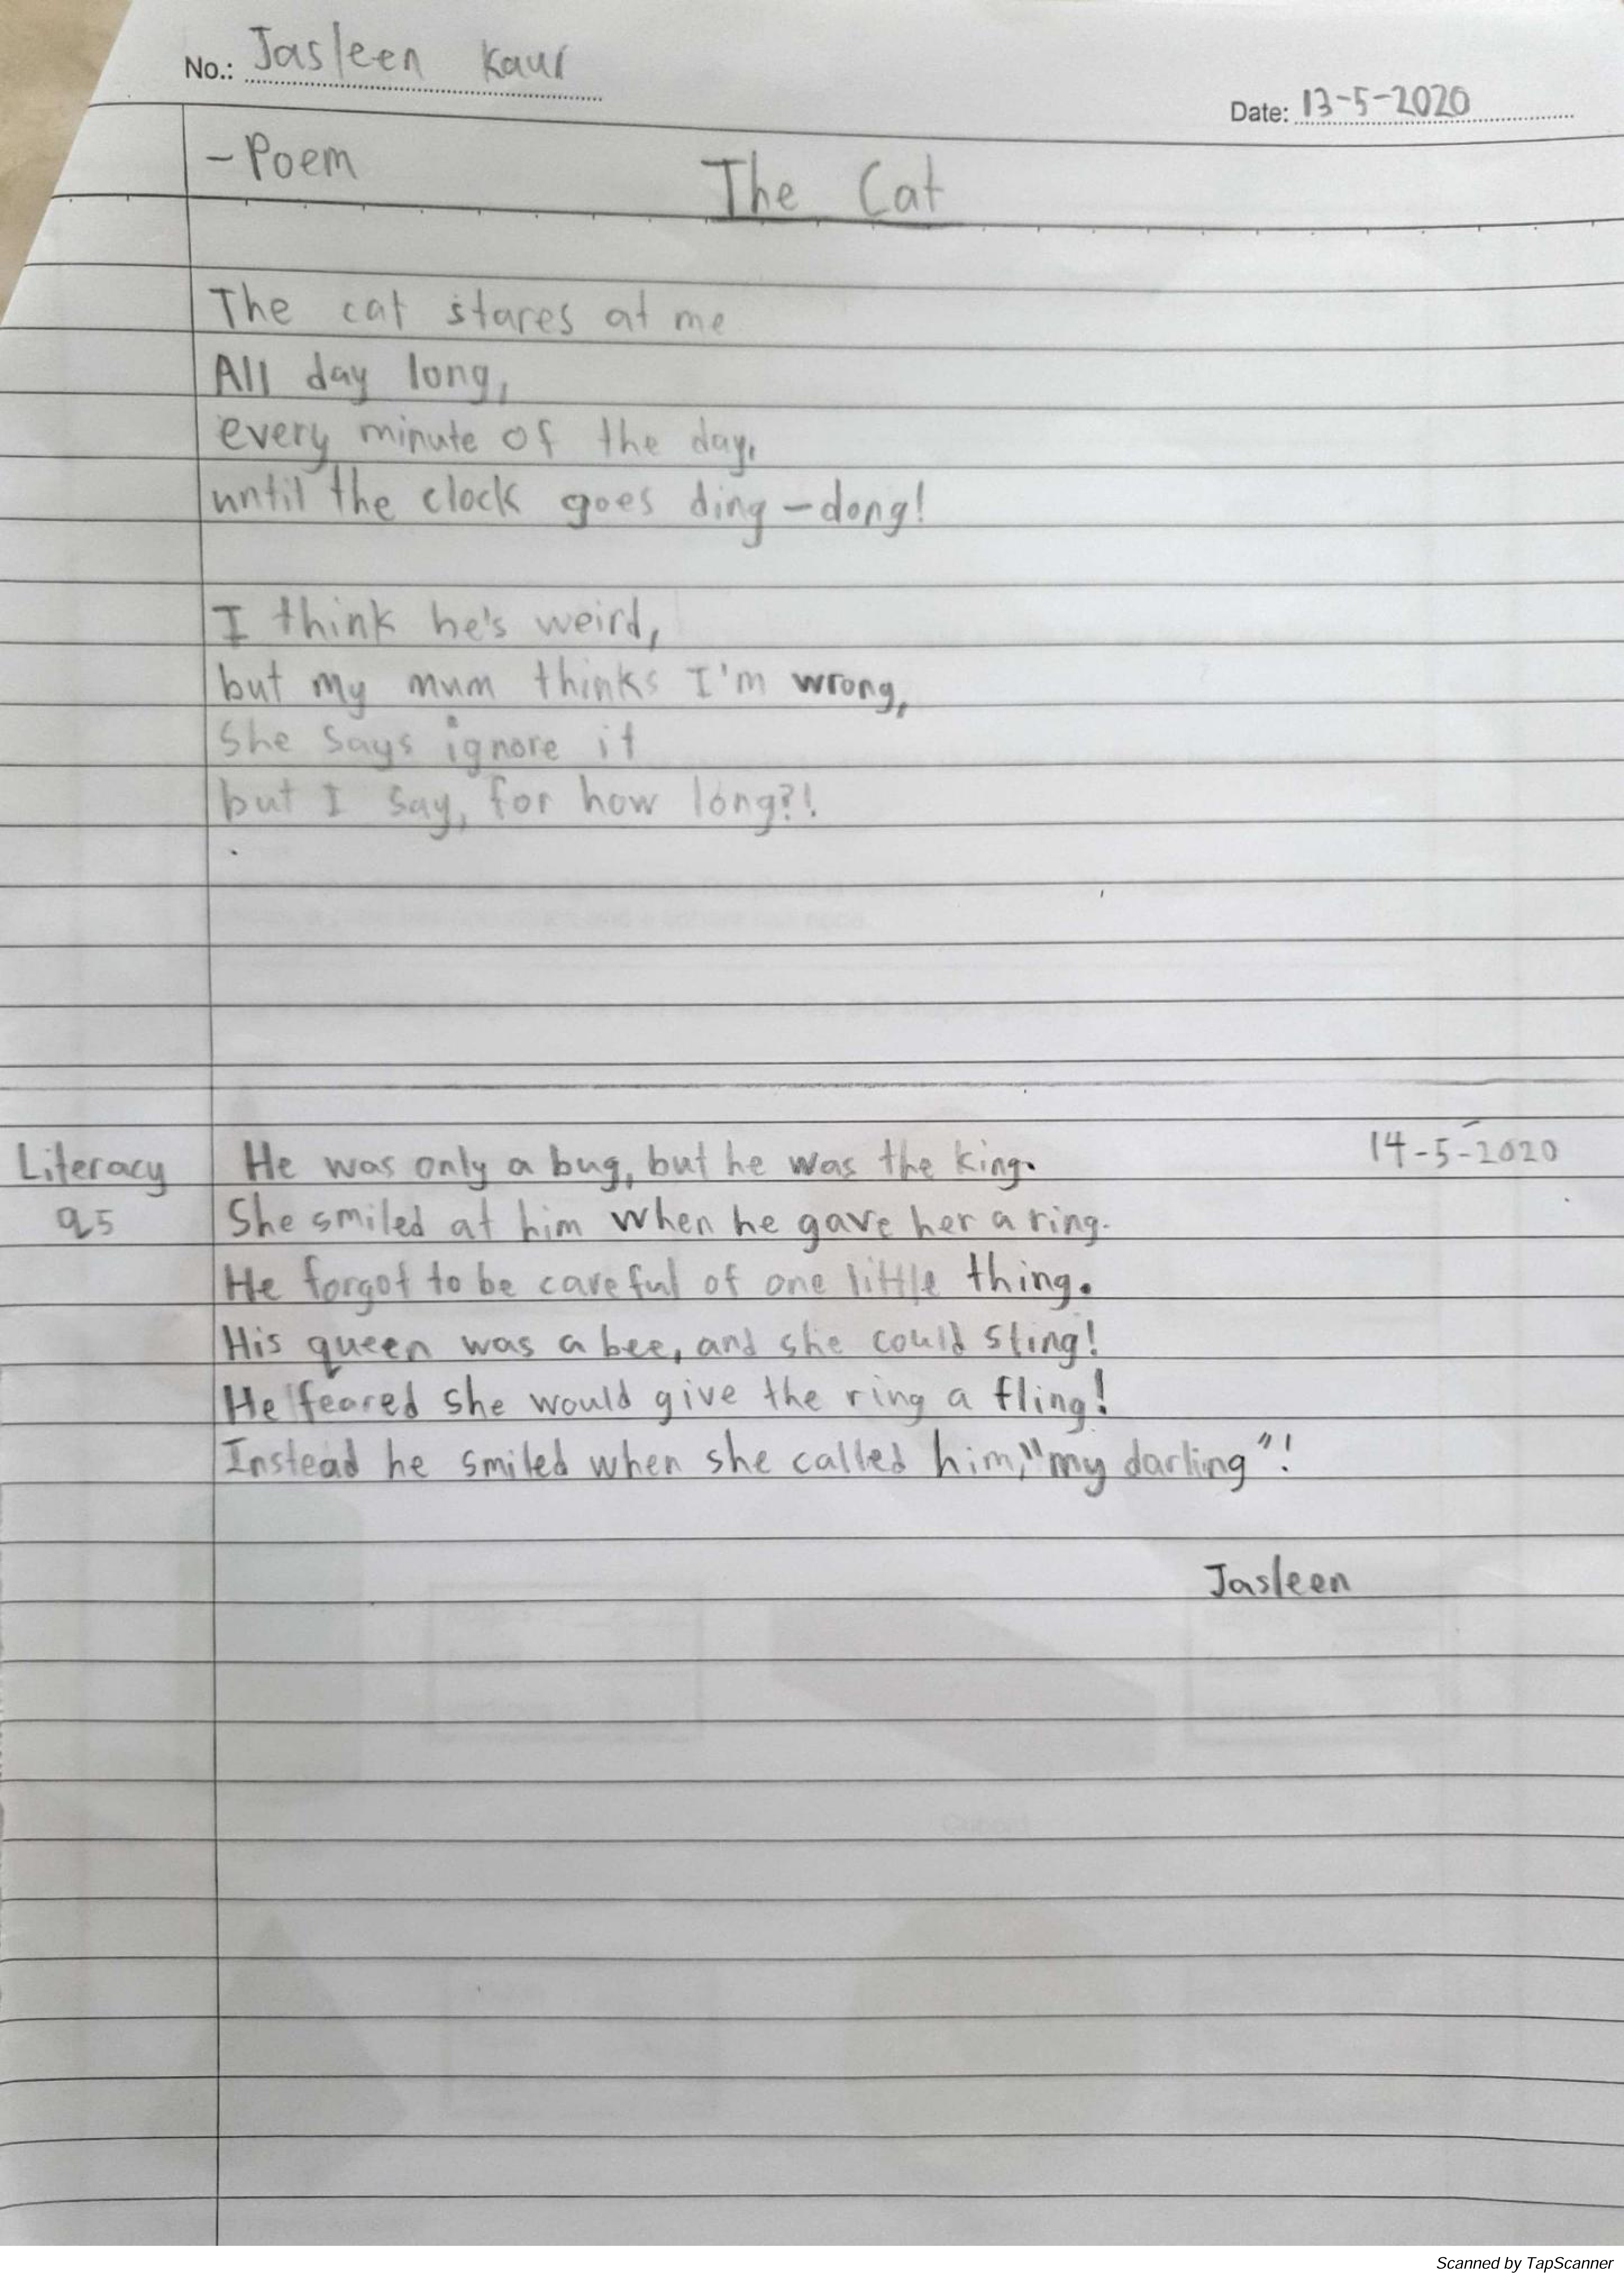 No.: Jasleen Kaur
Date: 13-5-2020
- Poem
The Cat
The cat stares at me
All day long,
every minute of the day,
until the clock goes ding-dong!
I think he's weird,
but my mum thinks I'm wrong,
she says ignore it
but I say, for how long?!
14-5-2020
Literacy He was only a bug, but he was the king.
q5 She smiled at him when he gave her a ring.
He forgot to be careful of one little thing.
His queen was a bee, and she could sting!
He feared she would give the ring a fling!
Instead he smiled when she called him, "my darling"!
Jasleen
Scanned by TapScanner